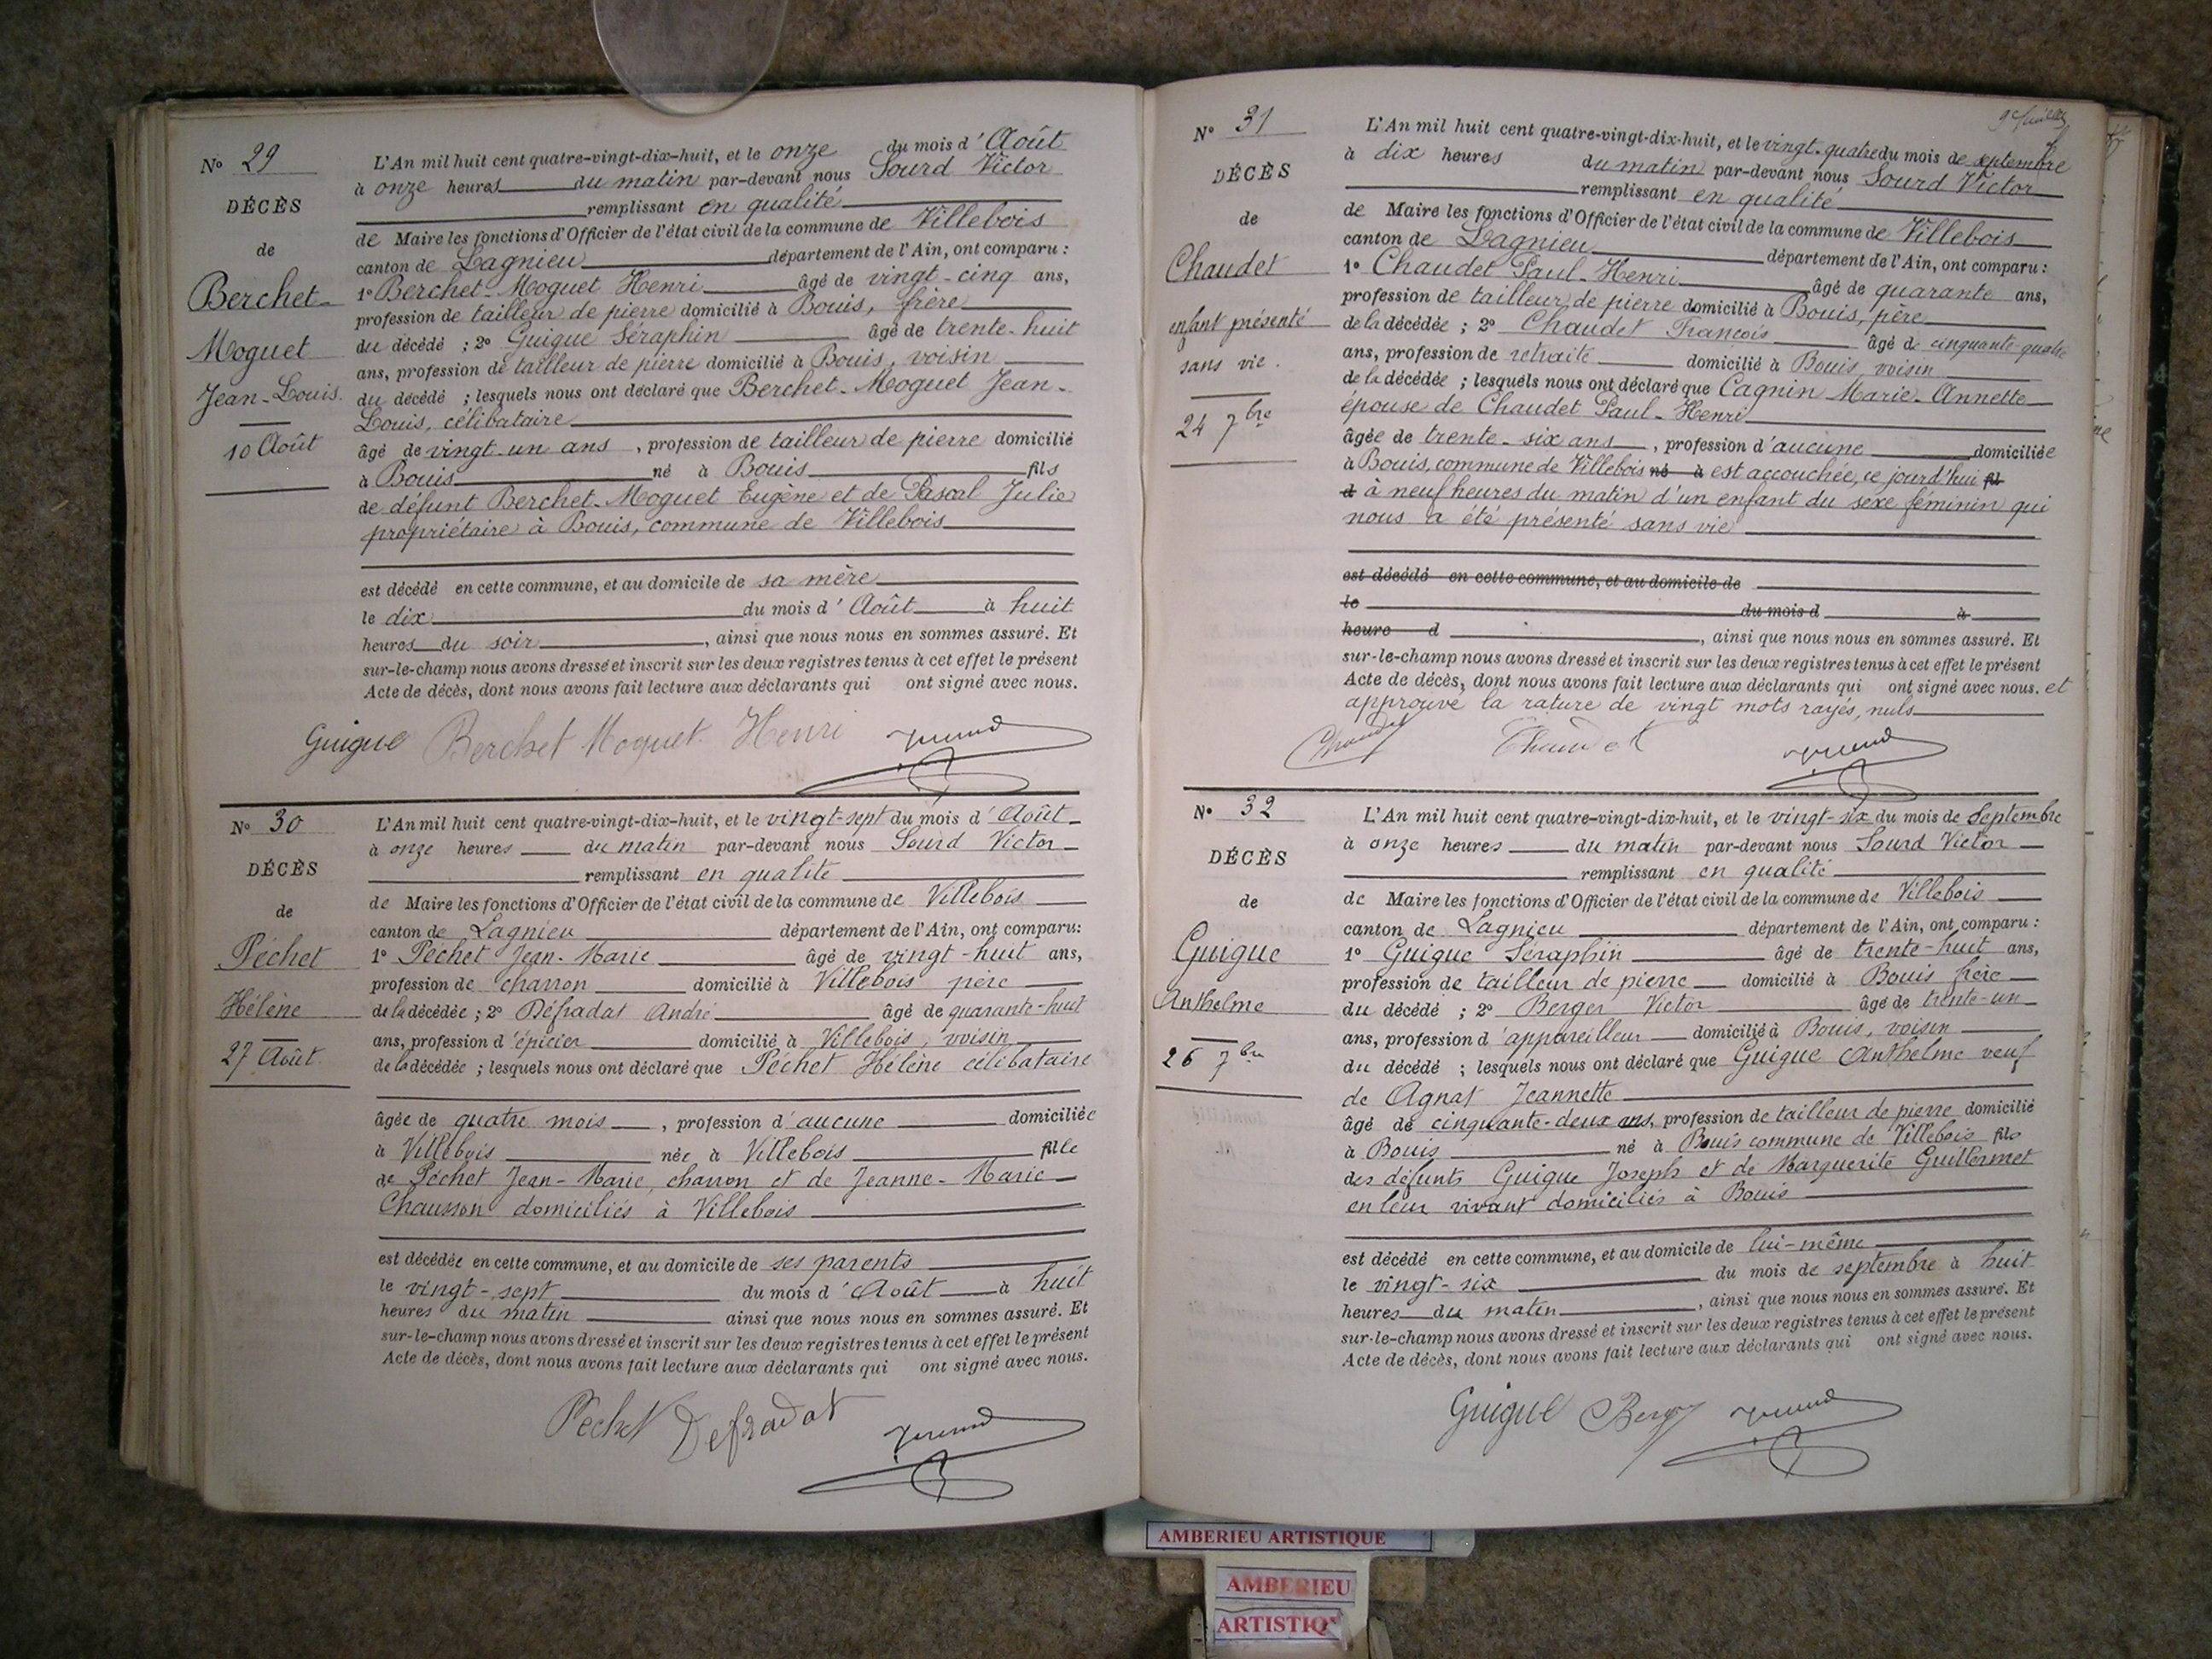 N° 29
DÉCÈS
de
Berchet-
Moguet
Jean-Louis.
10 Août
L'An mil huit cent quatre-vingt-dix-huit, et le onze du mois d' Août
à onze heures du matin par-devant nous Sourd Victor
remplissant en qualité
de Maire les fonctions d'Officier de l'état civil de la commune de Villebois
canton de Lagnieu département de l'Ain, ont comparu :
1° Berchet-Moguet Henri âgé de vingt-cinq ans,
profession de tailleur de pierre domicilié à Bouis, frère
du décédé ; 2° Guigue Séraphin âgé de trente-huit
ans, profession de tailleur de pierre domicilié à Bouis, voisin
du décédé ; lesquels nous ont déclaré que Berchet-Moguet Jean-
Louis, célibataire
âgé de vingt-un ans , profession de tailleur de pierre domicilié
à Bouis né à Bouis fils
de défunt Berchet-Moguet Eugène et de Pascal Julie
propriétaire à Bouis, commune de Villebois
est décédé en cette commune, et au domicile de sa mère
le dix du mois d' Août à huit
heures du soir , ainsi que nous nous en sommes assuré. Et
sur-le-champ nous avons dressé et inscrit sur les deux registres tenus à cet effet le présent
Acte de décès, dont nous avons fait lecture aux déclarants qui ont signé avec nous.
Guigue Berchet Moguet Henri
N° 30
DÉCÈS
de
Péchet
Hélène
27 Août.
L'An mil huit cent quatre-vingt-dix-huit, et le vingt-sept du mois d' Août
à onze heures du matin par-devant nous Sourd Victor
remplissant en qualité
de Maire les fonctions d'Officier de l'état civil de la commune de Villebois
canton de Lagnieu département de l'Ain, ont comparu:
1° Péchet Jean-Marie âgé de vingt-huit ans,
profession de charron domicilié à Villebois père
de la décédée ; 2° Défradat André âgé de quarante-huit
ans, profession d'épicier domicilié à Villebois, voisin
de la décédée ; lesquels nous ont déclaré que Péchet Hélène célibataire
âgée de quatre mois , profession d'aucune domiciliée
à Villebois née à Villebois fille
de Péchet Jean-Marie, charron et de Jeanne-Marie
Chausson domiciliés à Villebois
est décédée en cette commune, et au domicile de ses parents
le vingt-sept du mois d' Août à huit
heures du matin ainsi que nous nous en sommes assuré. Et
sur-le-champ nous avons dressé et inscrit sur les deux registres tenus à cet effet le présent
Acte de décès, dont nous avons fait lecture aux déclarants qui ont signé avec nous.
Péchet Defradat
N° 31
DÉCÈS
de
Chaudet
enfant présenté
sans vie.
24 7bre
L'An mil huit cent quatre-vingt-dix-huit, et le vingt-quatre du mois de septembre
à dix heures du matin par-devant nous Sourd Victor
remplissant en qualité
de Maire les fonctions d'Officier de l'état civil de la commune de Villebois
canton de Lagnieu département de l'Ain, ont comparu :
1° Chaudet Paul-Henri âgé de quarante ans,
profession de tailleur de pierre domicilié à Bouis, père
de la décédée ; 2° Chaudet François âgé de cinquante-quatre
ans, profession de retraité domicilié à Bouis, voisin
de la décédée ; lesquels nous ont déclaré que Cagnin Marie-Annette
épouse de Chaudet Paul-Henri
âgée de trente-six ans , profession d'aucune domiciliée
à Bouis, commune de Villebois né à est accouchée, ce jourd'hui fil
d à neuf heures du matin d'un enfant du sexe féminin qui
nous a été présenté sans vie
est décédé en cette commune, et au domicile de
le du mois d à
heure d , ainsi que nous nous en sommes assuré. Et
sur-le-champ nous avons dressé et inscrit sur les deux registres tenus à cet effet le présent
Acte de décès, dont nous avons fait lecture aux déclarants qui ont signé avec nous. et
approuvé la rature de vingt mots rayés, nuls
Chaudet Chaudet
N° 32
DÉCÈS
de
Guigue
Anthelme
26 7bre
L'An mil huit cent quatre-vingt-dix-huit, et le vingt-six du mois de septembre
à onze heures du matin par-devant nous Sourd Victor
remplissant en qualité
de Maire les fonctions d'Officier de l'état civil de la commune de Villebois
canton de Lagnieu département de l'Ain, ont comparu :
1° Guigue Séraphin âgé de trente-huit ans,
profession de tailleur de pierre domicilié à Bouis frère
du décédé ; 2° Berger Victor âgé de trente-un
ans, profession d'appareilleur domicilié à Bouis, voisin
du décédé ; lesquels nous ont déclaré que Guigue Anthelme veuf
de Agnat Jeannette
âgé de cinquante-deux ans, profession de tailleur de pierre domicilié
à Bouis né à Bouis commune de Villebois fils
des défunts Guigue Joseph et de Marguerite Guillermet
en leur vivant domiciliés à Bouis
est décédé en cette commune, et au domicile de lui-même
le vingt-six du mois de septembre à huit
heures du matin , ainsi que nous nous en sommes assuré. Et
sur-le-champ nous avons dressé et inscrit sur les deux registres tenus à cet effet le présent
Acte de décès, dont nous avons fait lecture aux déclarants qui ont signé avec nous.
Guigue Berger
AMBERIEU ARTISTIQUE
AMBERIEU
ARTISTIQ